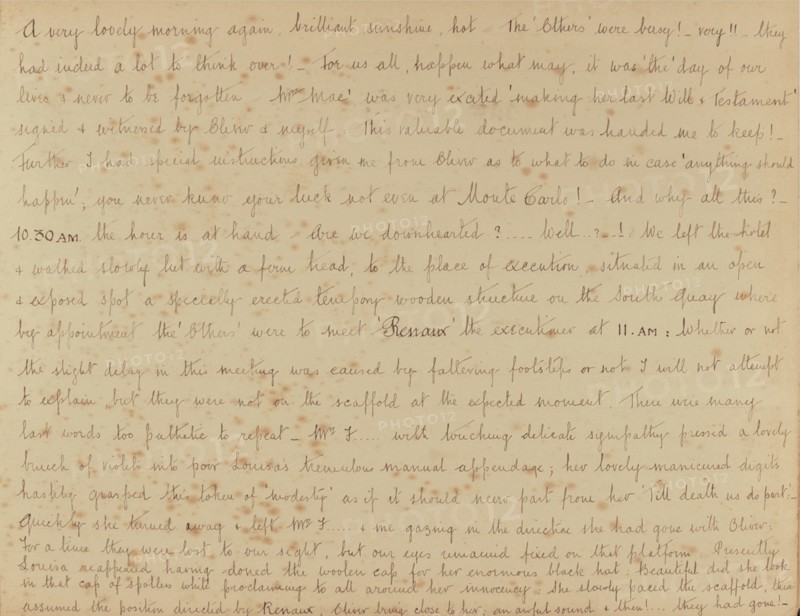 A very lovely morning again, brilliant sunshine, hot. The 'Others' were busy! – very!! – they
had indeed a lot to think over! – For us all, happen what may, it was 'the' day of our
lives & never to be forgotten. Mrs 'Mac' was very excited 'making her last Will & Testament'
signed & witnessed by Oliver & myself. This valuable document was handed me to keep! –
Further I had special instructions given me from Oliver as to what to do in case 'anything should
happen'; you never know your luck not even at Monte Carlo! – And why all this? –
10.30 AM. the hour is at hand – Are we downhearted? .... Well ..? –! We left the hotel
& walked slowly but with a firm tread, to the place of execution, situated in an open
& exposed spot a specially erected tempory wooden structure on the South Quay where
by appointment the 'Others' were to meet 'Renaux' the executioner at 11. AM: Whether or not
the slight delay in this meeting was caused by faltering footsteps or not I will not attempt
to explain but they were not on the scaffold at the expected moment. There were many
last words too pathetic to repeat – Mrs F..... with touching delicate sympathy pressed a lovely
bunch of violets into poor Louisa's tremulous manual appendage; her lovely manicured digits
hastily grasped this token of 'modesty' as if it should never part from her 'Till death us do part': –
Quickly she turned away & left Mrs F..... & me gazing in the direction she had gone with Oliver:
For a time they were lost to our sight, but our eyes remained fixed on that platform. Presently
Louisa reappeared having doned the woolen cap for her enormous black hat. Beautiful did she look
in that cap of spotless white proclaiming to all around her innocency. She slowly paced the scaffold, then
assumed the position directed by Renaux, Oliver being close to her; an awful sound & then! ... they had gone! –
PHOTO12